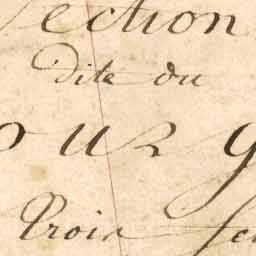 ection
dite du
our g
Trois fe